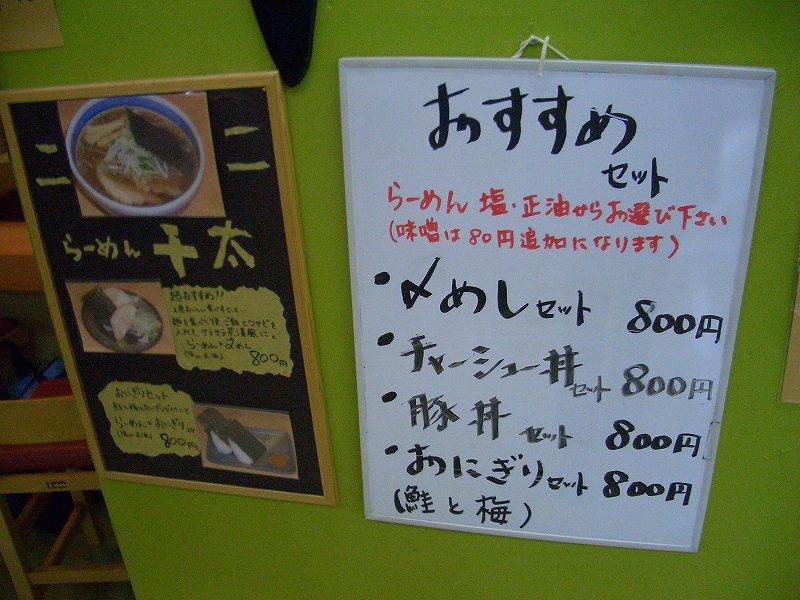 らーめん 千太
超おすすめ!!
らーめん+〆めし
800円
おにぎりセット
らーめん+おにぎり
800円
おすすめ
セット
らーめん 塩・正油からお選び下さい
(味噌は80円追加になります)
・〆めしセット 800円
・チャーシュー丼セット 800円
・豚丼セット 800円
・おにぎりセット 800円
(鮭と梅)